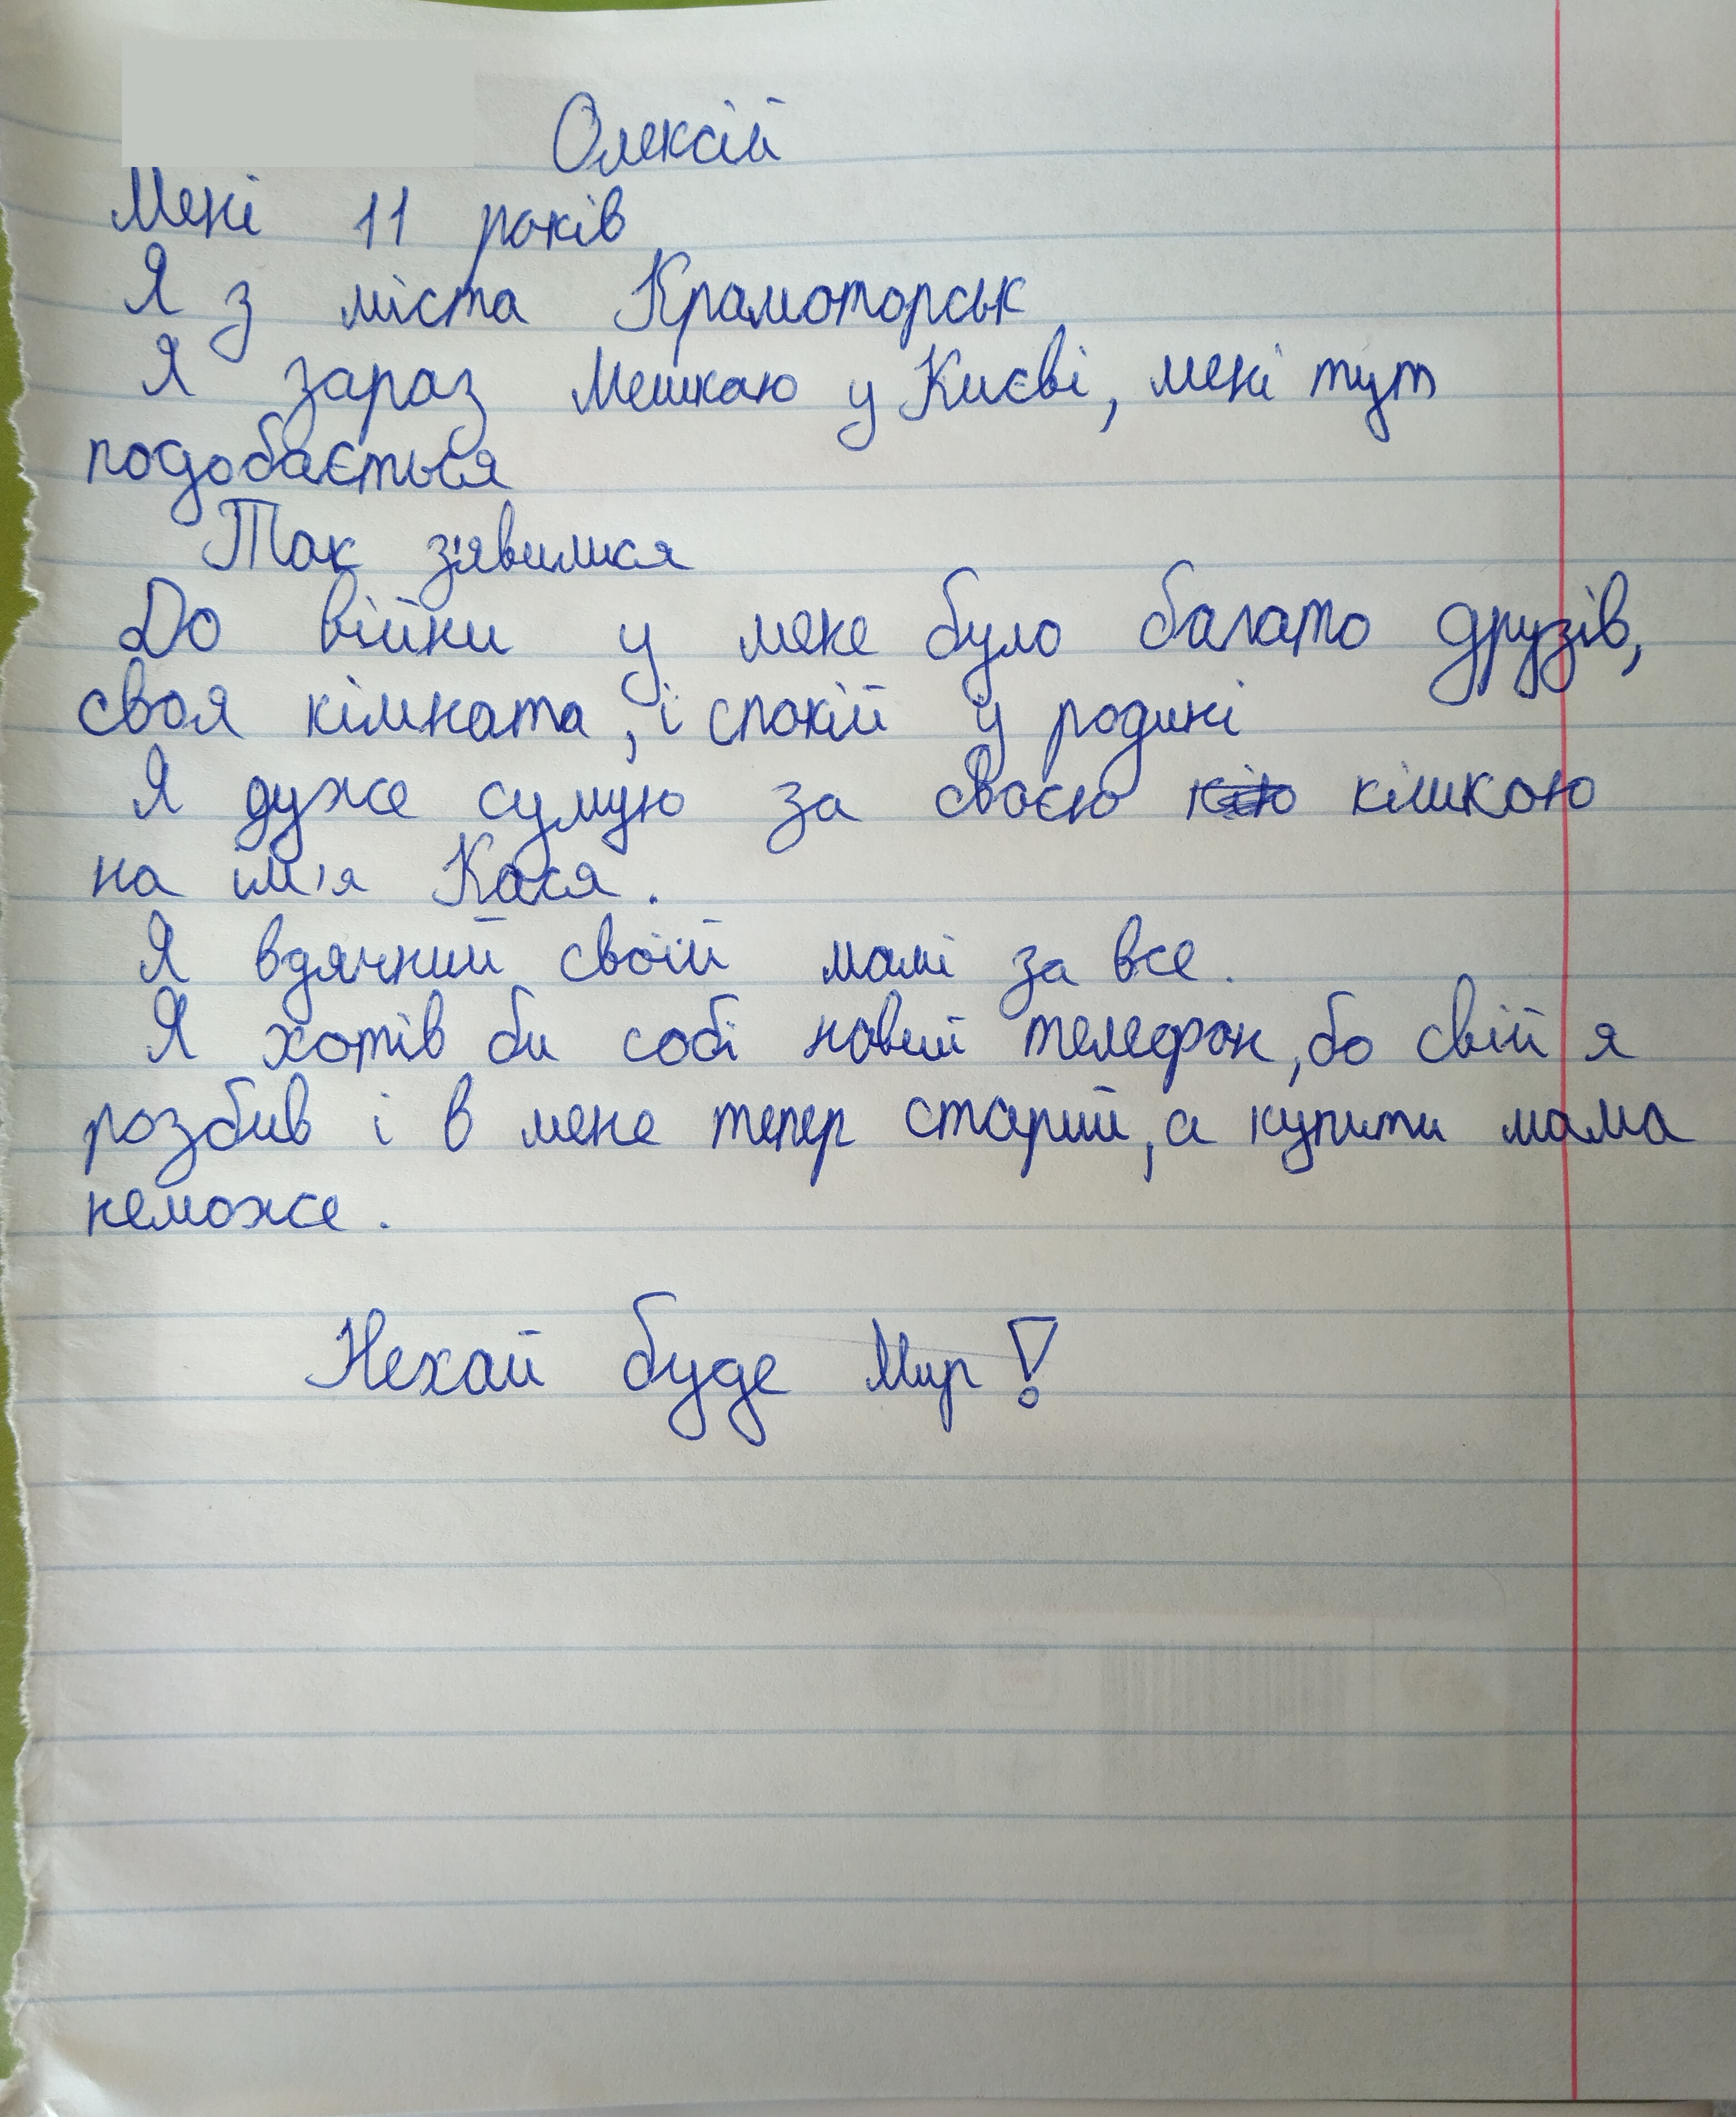 Олексій
Мені 11 років
Я з міста Крамоторськ
Я зараз мешкаю у Києві, мені тут
подобається
Так з'явилися
До війни у мене було багато друзів,
своя кімната, і спокій у родині
Я дуже сумую за своєю кішкою
на ім'я Кася.
Я вдячний своїй мамі за все.
Я хотів би собі новий телефон, бо свій я
розбив і в мене тепер старий, а купити мама
неможе.
Нехай буде Мир!